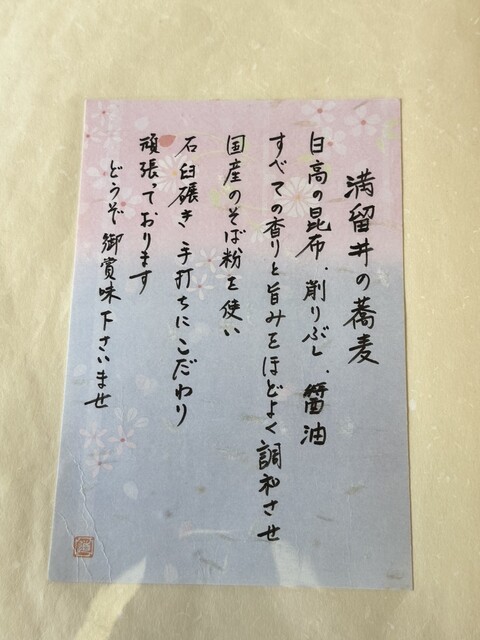 満留井の蕎麦
日高の昆布、削りぶし、醤油
すべての香りと旨みをほどよく調和させ
国産のそば粉を使い
石臼碾き手打ちにこだわり
頑張っております
どうぞ御賞味下さいませ